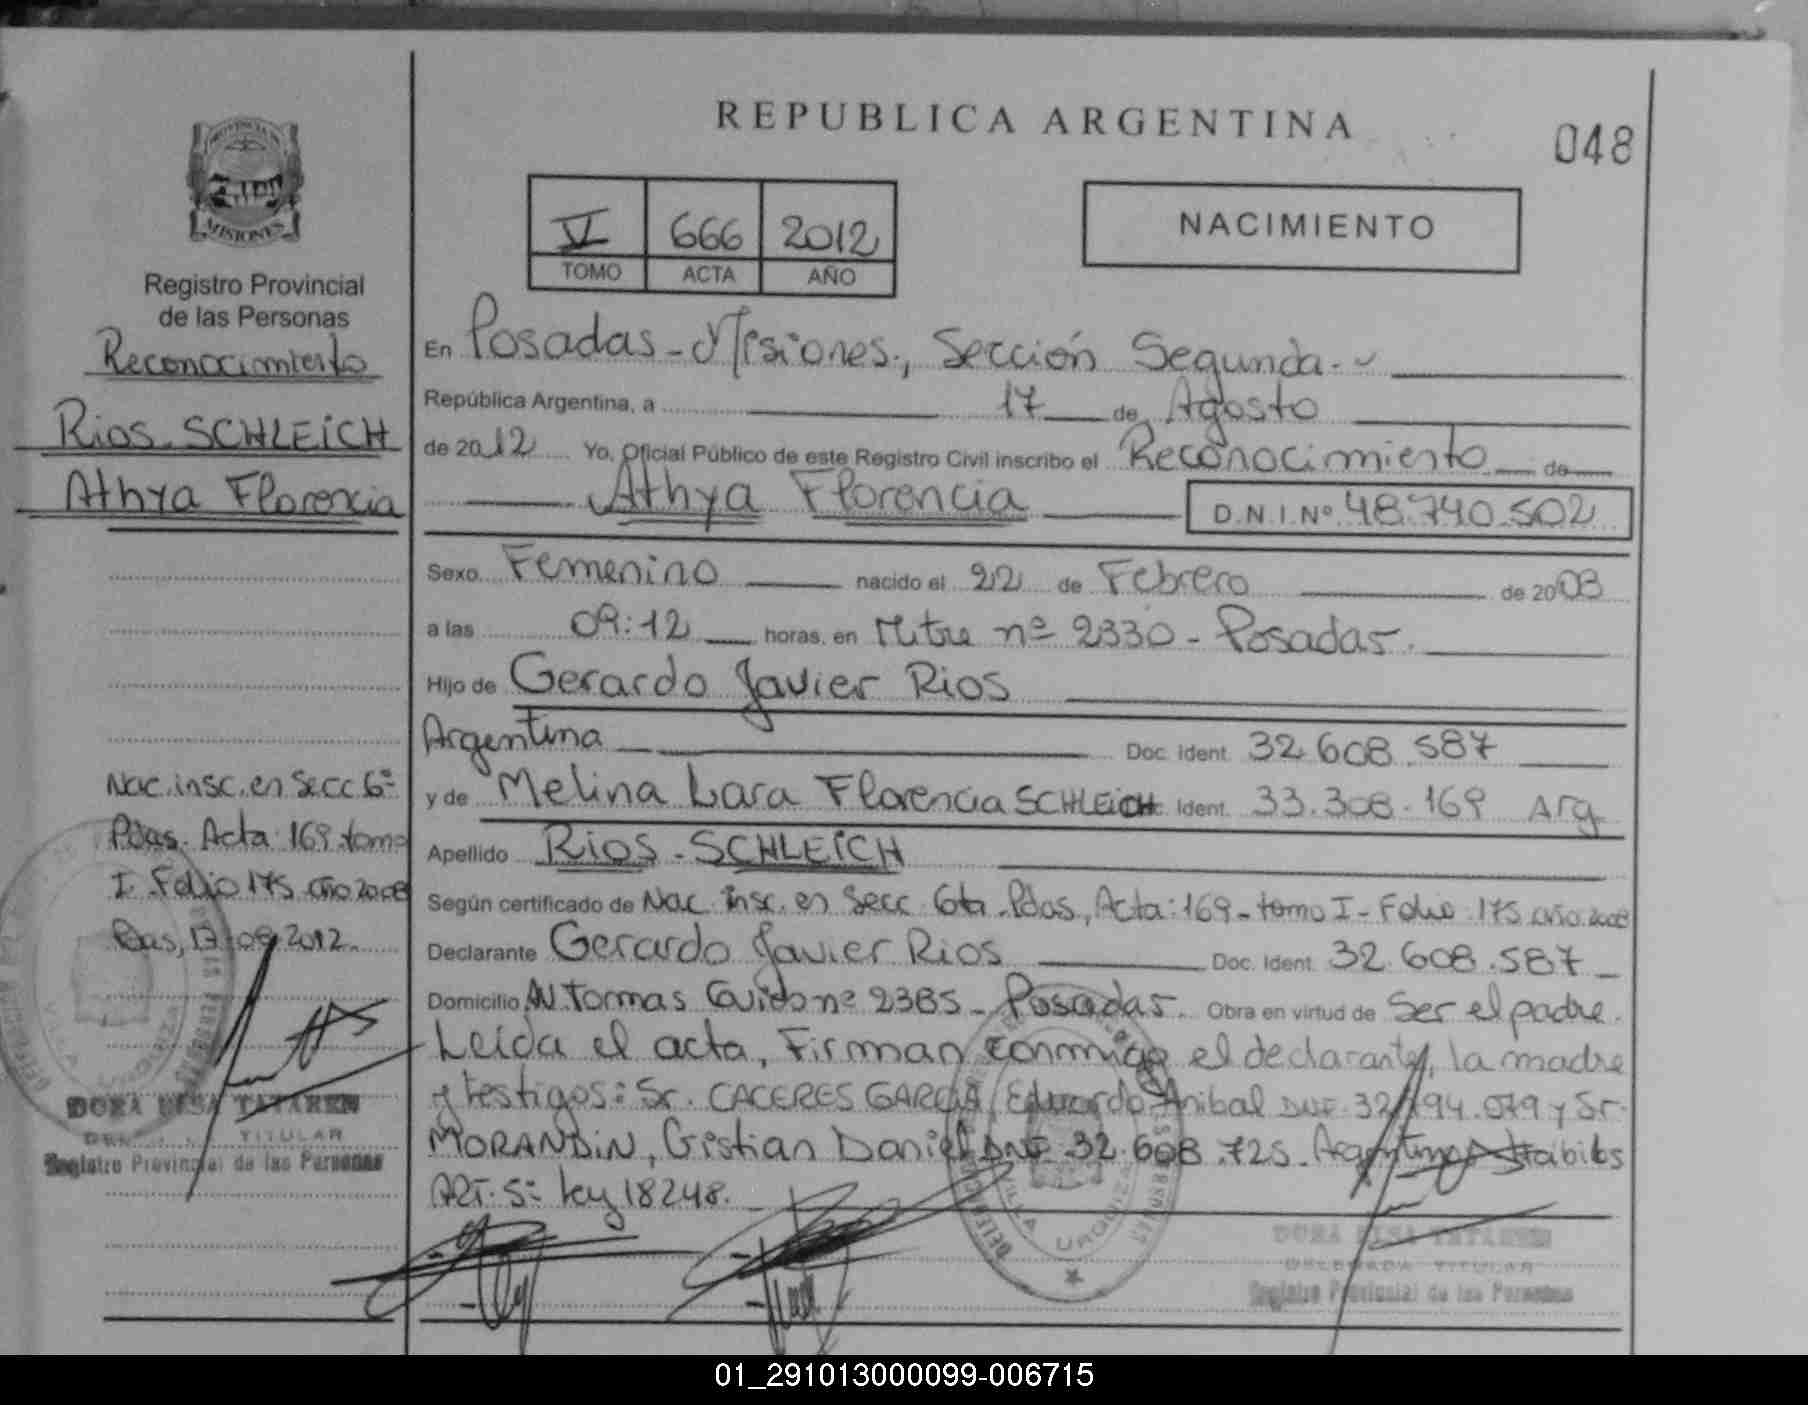 REPUBLICA ARGENTINA
048
V 666 2012
TOMO ACTA AÑO
NACIMIENTO
PROVINCIA DE
MISIONES
Registro Provincial
de las Personas
Reconocimiento
Rios. SCHLEICH
Athya Florencia
Nac. insc. en Secc 6ª
Pdas. Acta: 169. tomo
I. Folio 175 año 2008
Pdas, 17-09-2012.
DORA ELSA TATAREN
TITULAR
Registro Provincial de las Personas
En Posadas - Misiones, Sección Segunda.
República Argentina, a 17 de Agosto
de 2012 Yo, Oficial Público de este Registro Civil inscribo el Reconocimiento de
Athya Florencia D.N.I. Nº 48.740.502
Sexo Femenino nacido el 22 de Febrero de 2008
a las 09:12 horas, en Mitre nº 2330 - Posadas.
Hijo de Gerardo Javier Rios
Argentina Doc. Ident. 32.608.587
y de Melina Lara Florencia SCHLEICH Ident. 33.308.169 Arg
Apellido Rios - SCHLEICH
Según certificado de Nac. insc. en Secc 6ta. Pdas, Acta: 169 - tomo I - Folio 175 año 2008
Declarante Gerardo Javier Rios Doc. Ident. 32.608.587
Domicilio AV. Tormas Guido nº 2385 - Posadas. Obra en virtud de Ser el padre.
Leida el acta, Firman conmigo el declarante, la madre
y testigos: Sr. CACERES GARCIA, Eduardo Anibal DNI. 32.194.079 y Sr.
MORANDIN, Cristian Daniel DNI 32.608.725. Argentinos Habiles
ART. 5º Ley 18248.
VILLA URQUIZA
DORA ELSA TATAREN
DELEGADA TITULAR
Registro Provincial de las Personas
01_291013000099-006715